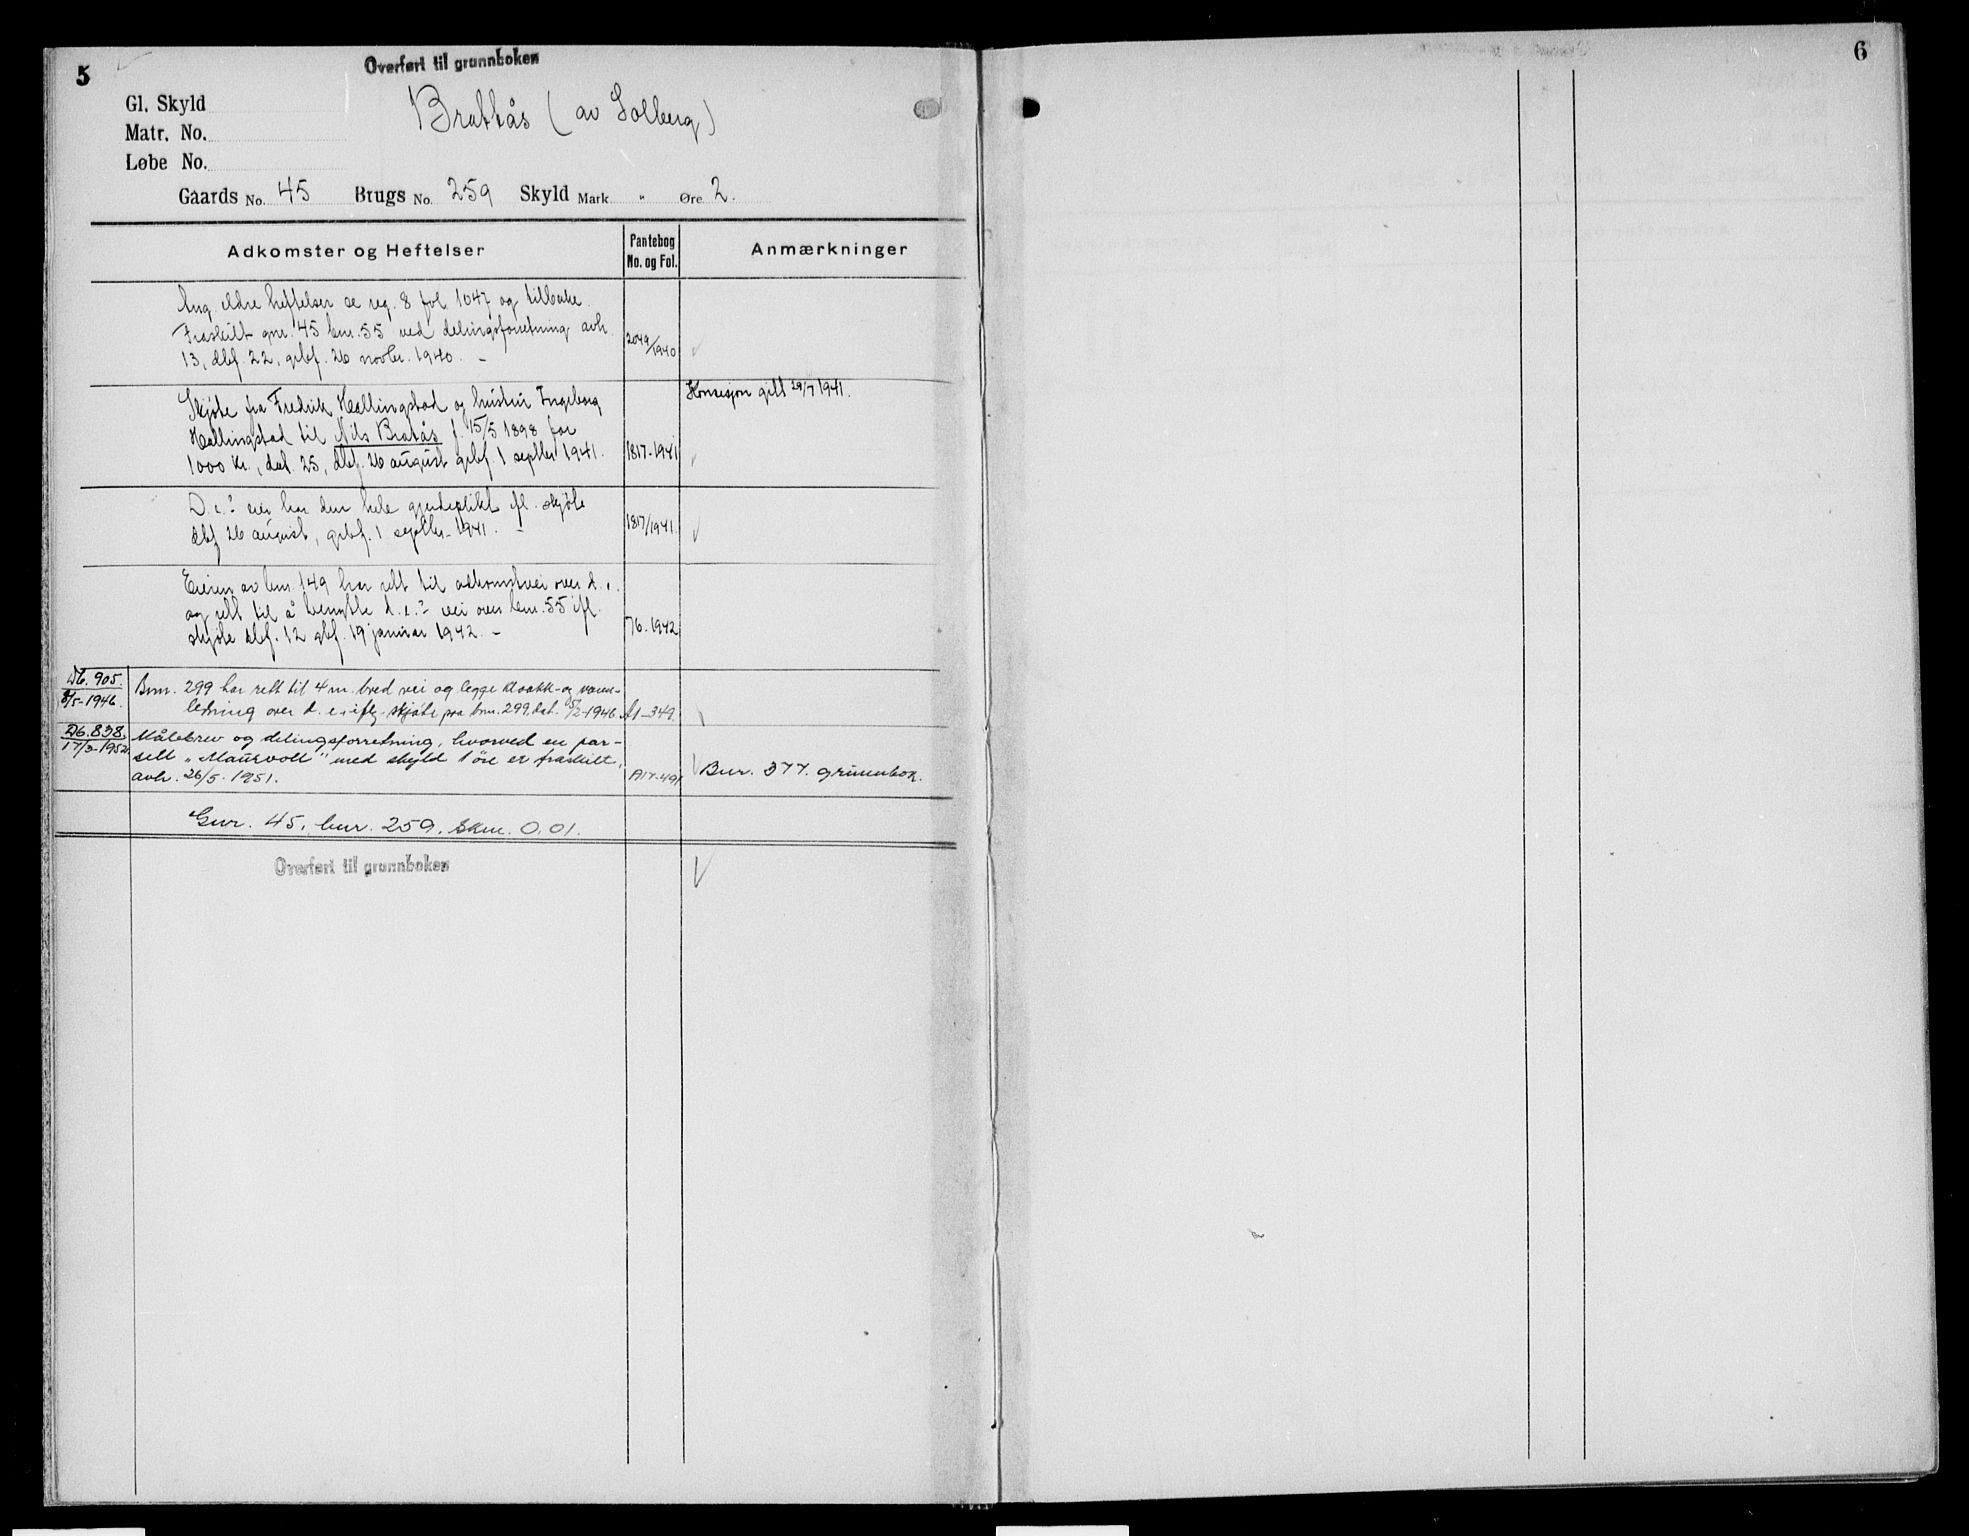 5
Overført til grunnboken
6
Gl. Skyld
Brattås (av Solberg)
Matr. No.
Løbe No.
Gaards No. 45 Brugs No. 259 Skyld Mark " Øre 2.
Adkomster og Heftelser
Pantebog No. og Fol.
Anmærkninger
Ang. eldre heftelser se reg. 8 fol. 1047 og tilbake.
Fraskilt gnr. 45 bnr. 55 ved delingsforretning avh.
13, dbf. 22, grbf. 26 novbr. 1940. –
2049/1940
Konsesjon gitt 29/7 1941.
Skjøte fra Fredrik Hallingstad og hustru Ingeborg
Hallingstad til Nils Bratås f. 15/5 1898 for
1000 kr., dat. 25, dbf. 26 august grbf. 1 septbr 1941.
1817-1941
D.e.s eier har den hele gjerdeplikt ifl. skjøte
dbf 26 august, grbf. 1 septbr. 1941. –
1817/1941.
Eieren av bnr. 149 har rett til adkomstvei over d.e.
og rett til å benytte d.e.s vei over bnr. 55 ifl.
skjøte dbf. 12 gbf. 19 januar 1942. –
76-1942
Db. 905.
8/5-1946.
Bnr. 299 har rett til 4 m. bred vei og legge kloakk- og vann-
ledning over d.e. iflg. skjøte fra bnr. 299, dat. 15/2-1946.
A1-349.
Db. 838.
17/3-1952.
Målebrev og delingsforretning, hvorved en par-
sell „Maurvoll" med skyld 1 øre er fraskilt,
avh. 26/5-1951.
A17-491
Bnr. 377. grunnbok.
Gnr. 45, bnr. 259. Skm. 0.01.
Overført til grunnboken